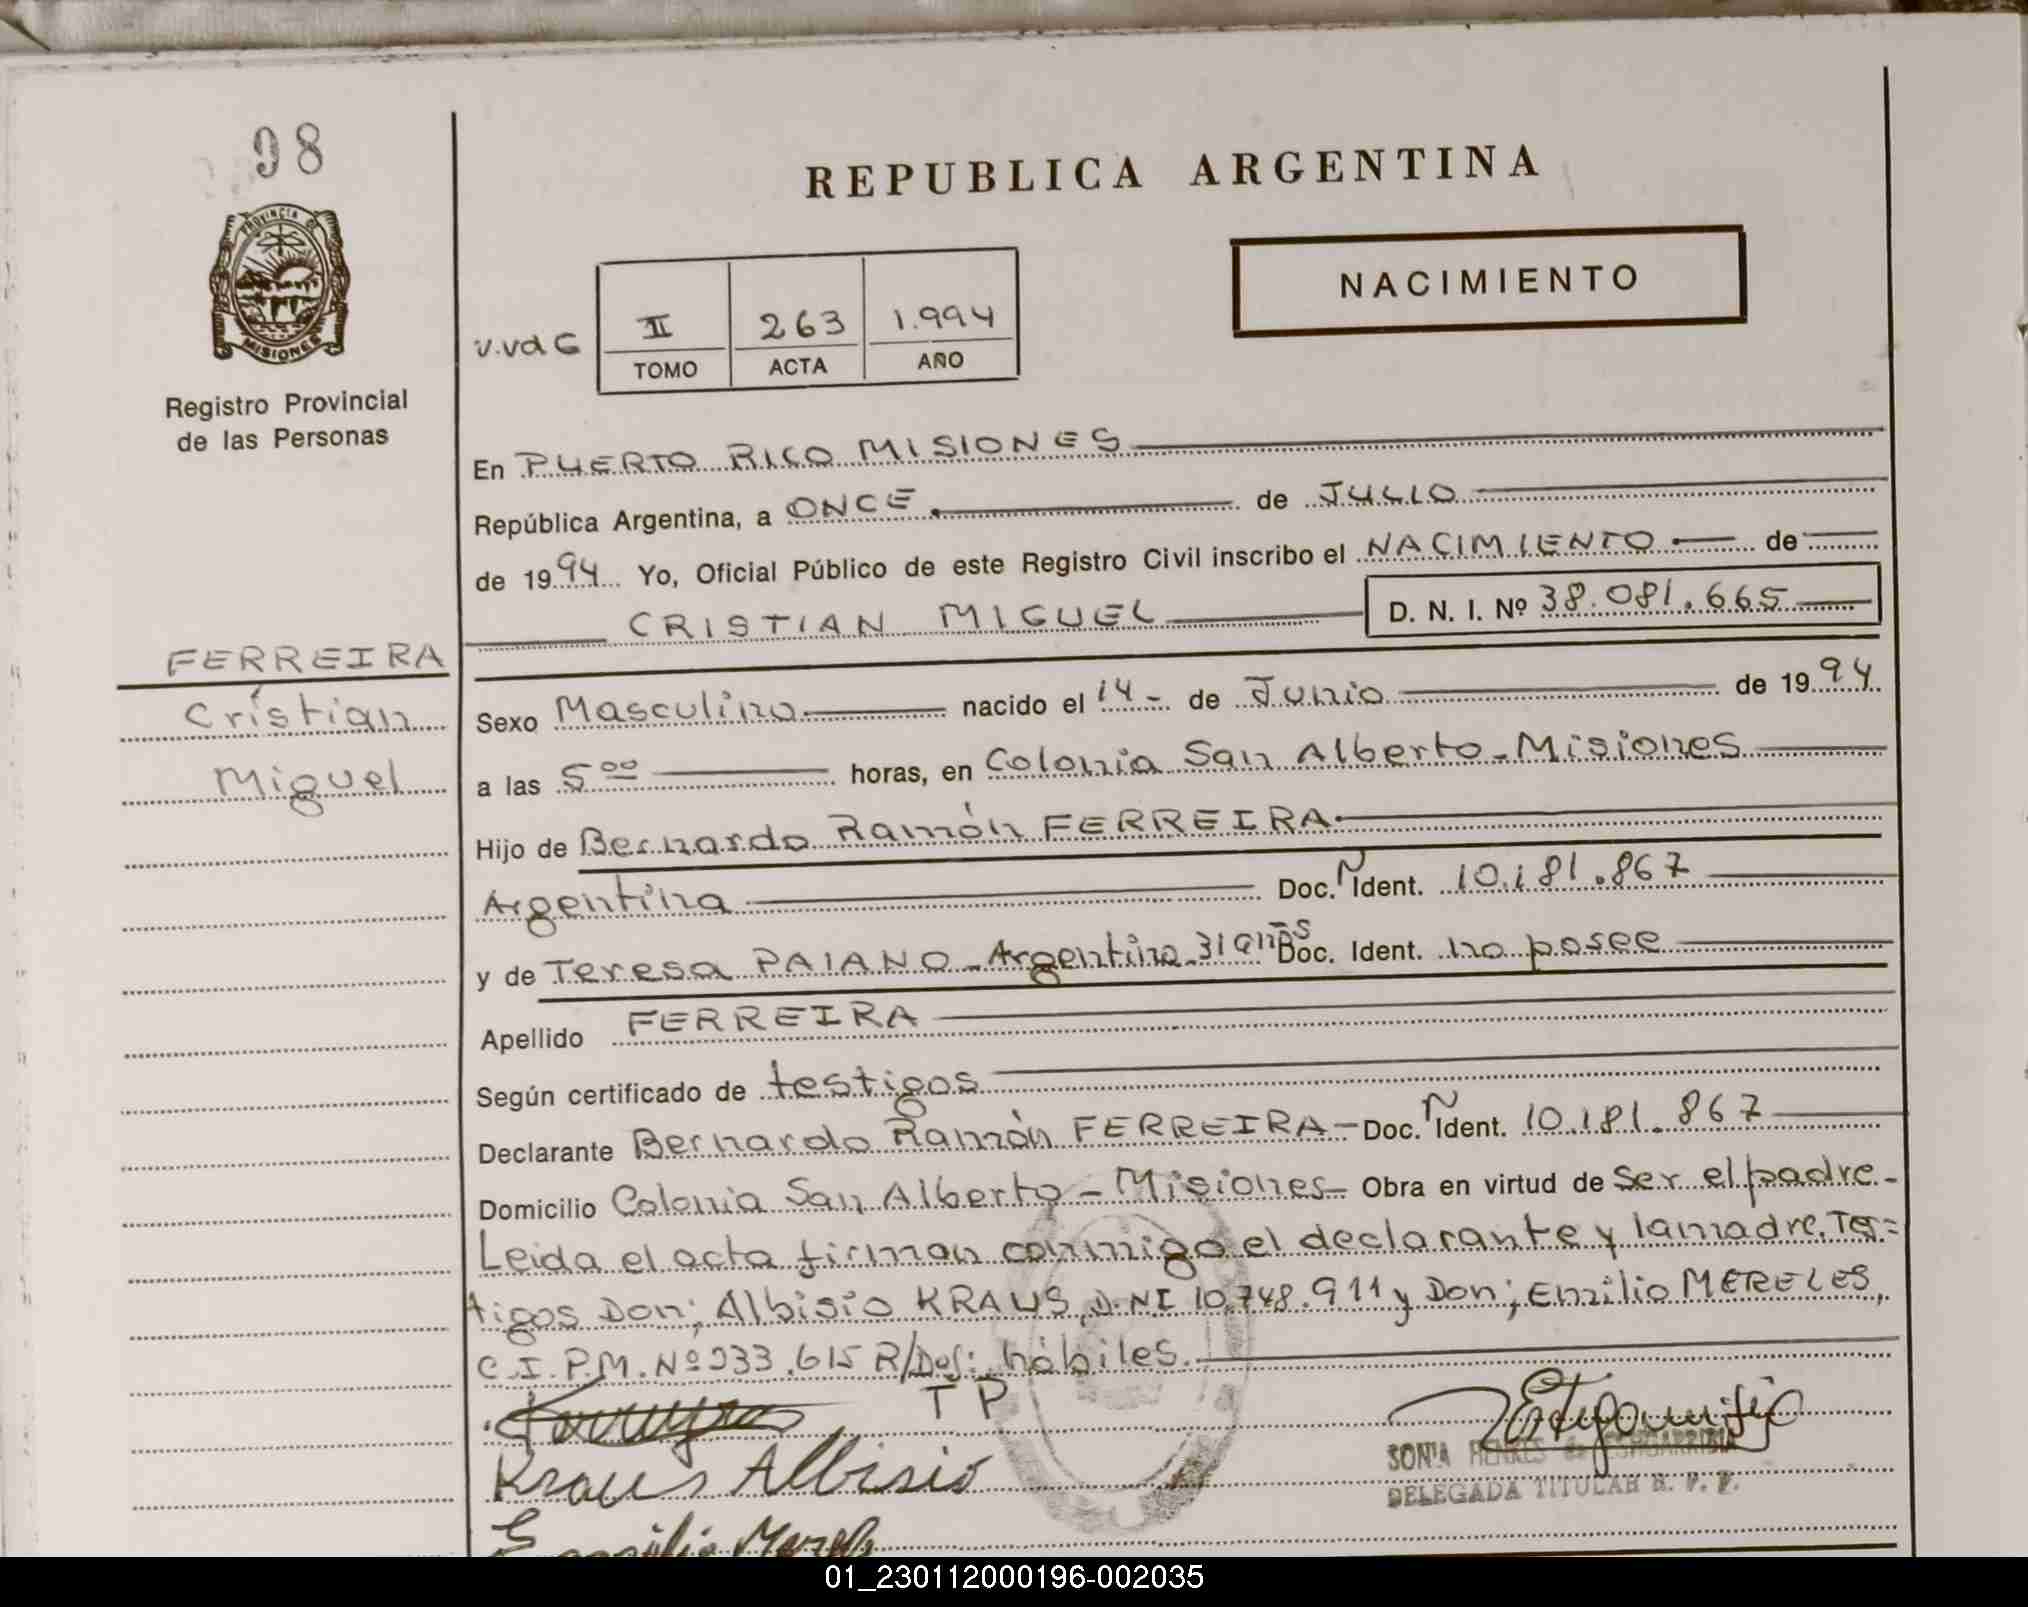 98
REPUBLICA ARGENTINA
PROVINCIA D
MISIONES
NACIMIENTO
V.Vd G
II 263 1.994
TOMO ACTA AÑO
Registro Provincial
de las Personas
En PUERTO RICO MISIONES
República Argentina, a ONCE de JULIO
de 1994 Yo, Oficial Público de este Registro Civil inscribo el NACIMIENTO de
CRISTIAN MIGUEL D. N. I. Nº 38.081.665
FERREIRA
Cristian
Miguel
Sexo Masculino nacido el 14- de Junio de 1994
a las 5 00 horas, en Colonia San Alberto-Misiones
Hijo de Bernardo Ramón FERREIRA
Argentina Doc. N Ident. 10.181.867
y de Teresa PAIANO-Argentina-31 años Doc. Ident. no posee
Apellido FERREIRA
Según certificado de testigos
Declarante Bernardo Ramón FERREIRA- Doc. N Ident. 10.181.867
Domicilio Colonia San Alberto-Misiones- Obra en virtud de Ser el padre.-
Leida el acta firman conmigo el declarante y la madre. Tes=
tigos Don; Albisio KRAUS, D.NI 10.748.911 y Don; Emilio MERELES,
C.I.P.M. Nº 333.615 R/Dos: hábiles.
T P
Kraus Albisio
SONIA de
DELEGADA TITULAR R. P. P.
Emilio
01_230112000196-002035